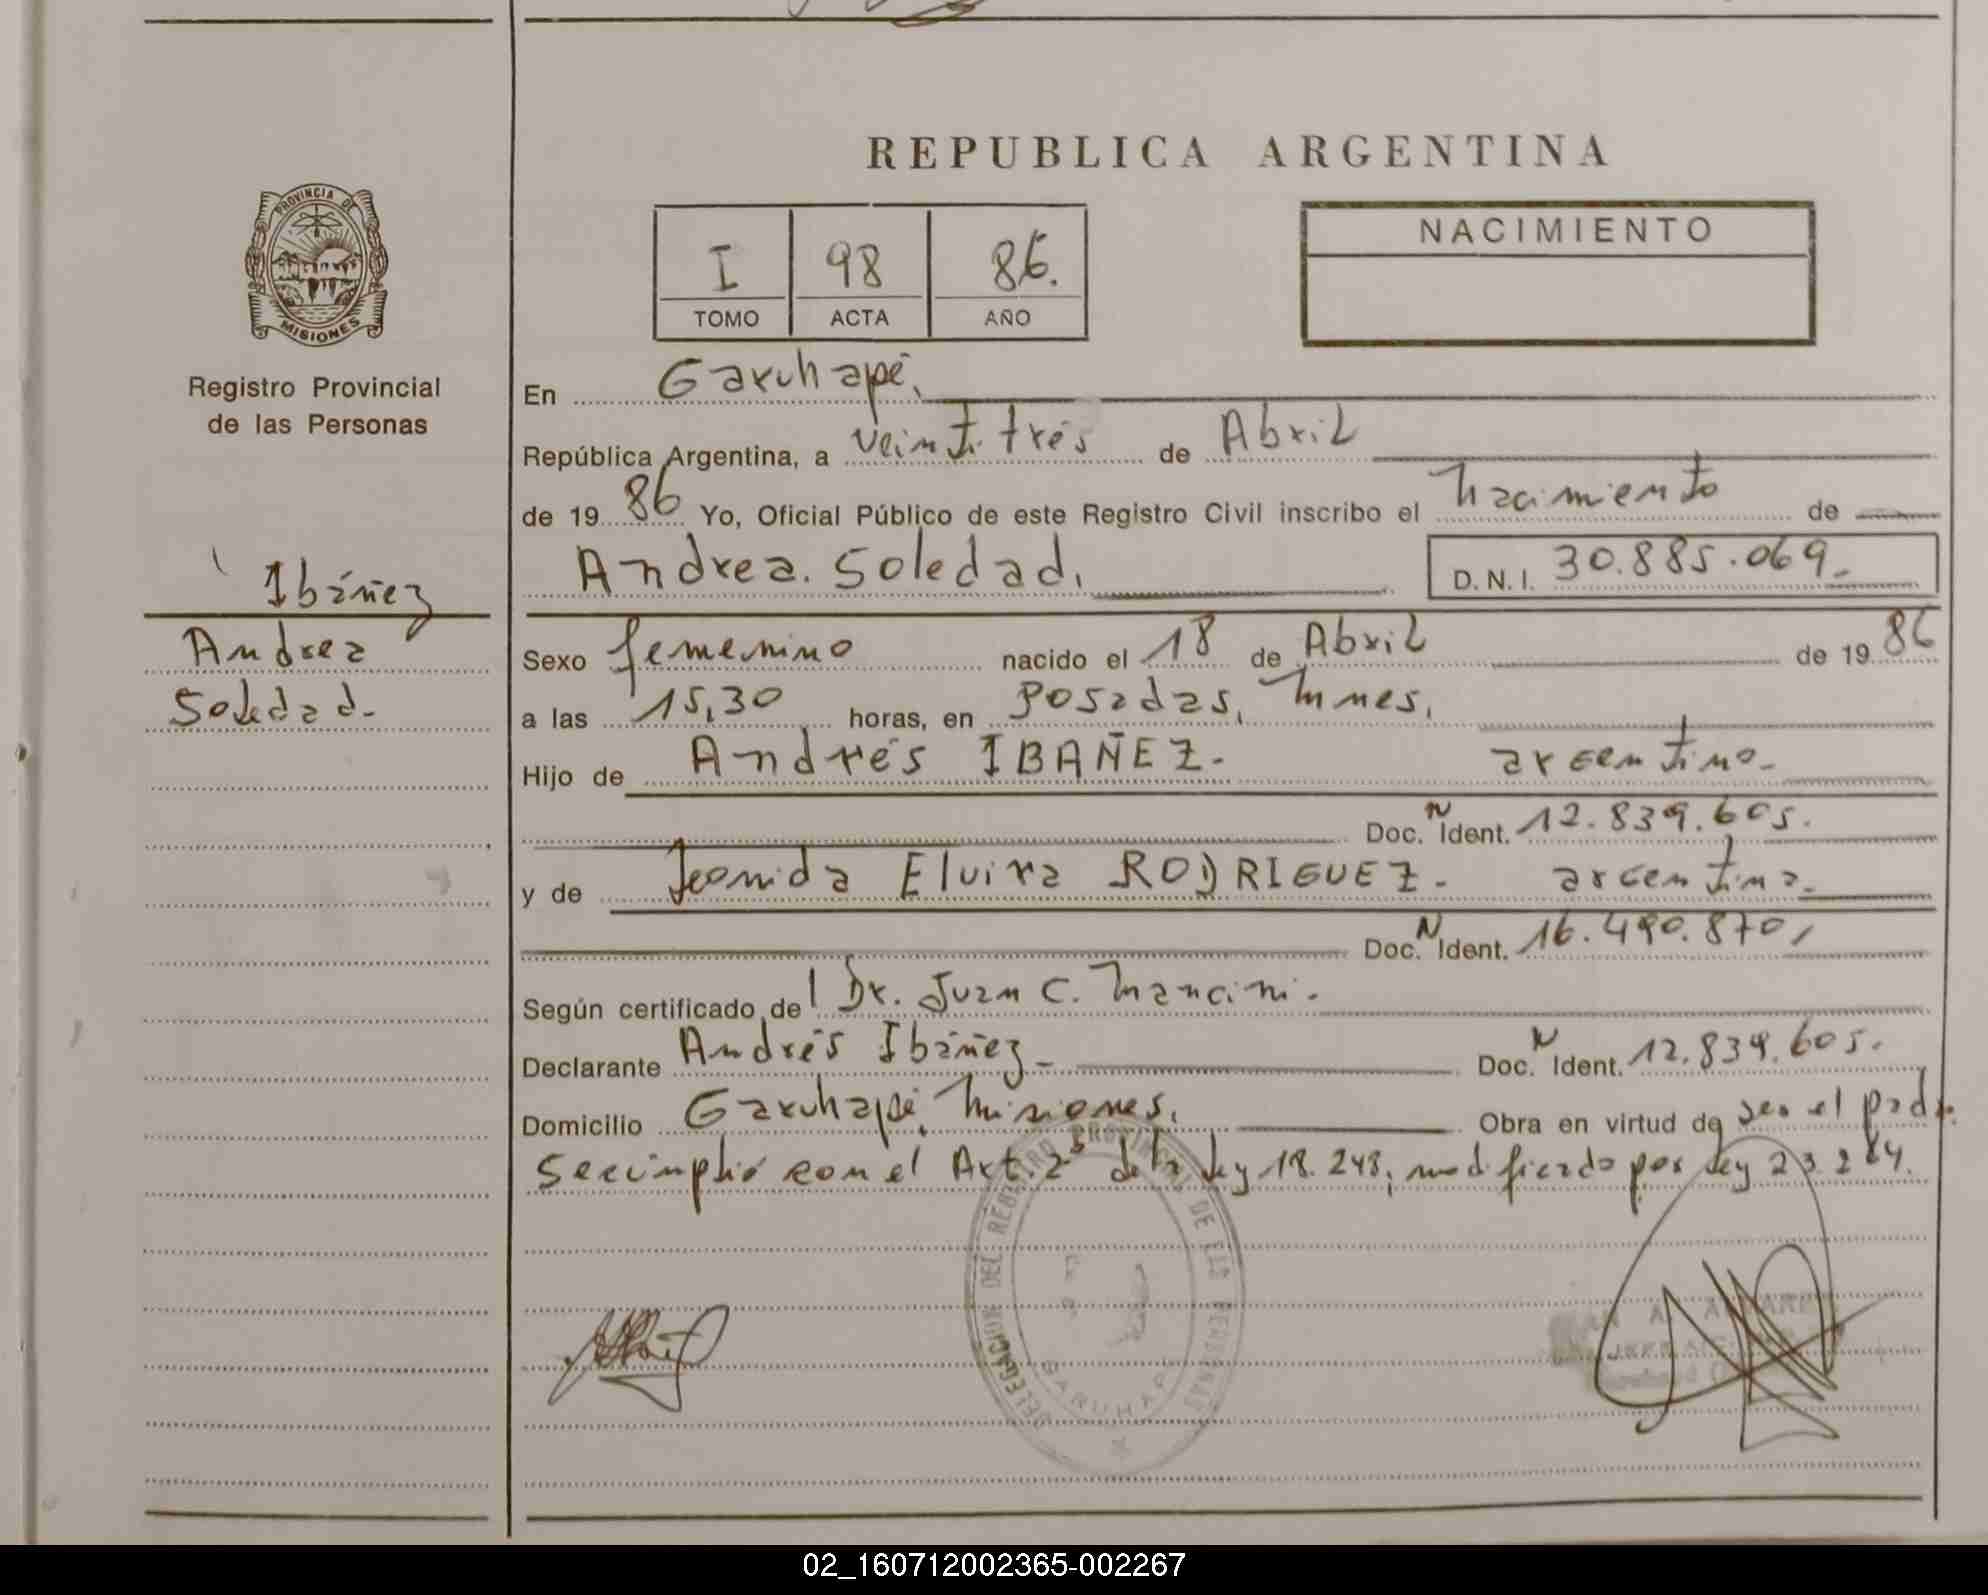 REPUBLICA ARGENTINA
PROVINCIA DE MISIONES
Registro Provincial
de las Personas
I 98 86.
TOMO ACTA AÑO
NACIMIENTO
En Garuhapé,
República Argentina, a veintitrés de Abril
de 19 86 Yo, Oficial Público de este Registro Civil inscribo el nacimiento de
Andrea Soledad, D.N.I. 30.885.069.-
Ibáñez
Andrea
Soledad.-
Sexo femenino nacido el 18 de Abril de 19 86
a las 15,30 horas, en Posadas, Mnes,
Hijo de Andrés IBAÑEZ.- argentino.-
Doc. N Ident. 12.839.605.
y de Leonida Elvira RODRIGUEZ.- argentina.-
Doc. N Ident. 16.490.870,
Según certificado del Dr. Juan C. Mancini.-
Declarante Andrés Ibáñez.- Doc. N Ident. 12.839.605.
Domicilio Garuhapé, Misiones, Obra en virtud de ser el padre.
Se cumplió con el Art. 2º de la Ley 18.248, modificado por Ley 23.264.
DELEGACION DEL REGISTRO PROVINCIAL DE LAS PERSONAS
GARUHAPE
02_160712002365-002267